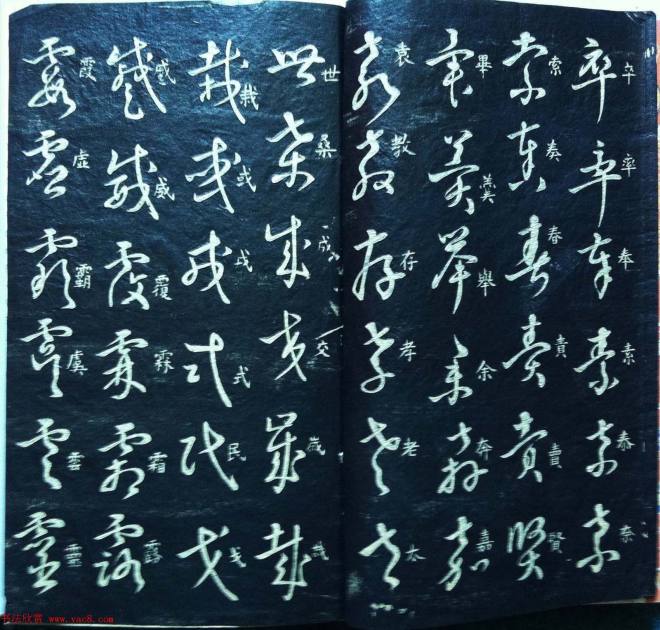 卒率奉素泰奈
索奏春責賣賢
畢舉余奔嘉
袁教存孝老太
世桑成交歲哉
栽或戍式民戈
威覆霖霜露
霞虛霸虞雲靈
书法欣赏 www.yac8.com